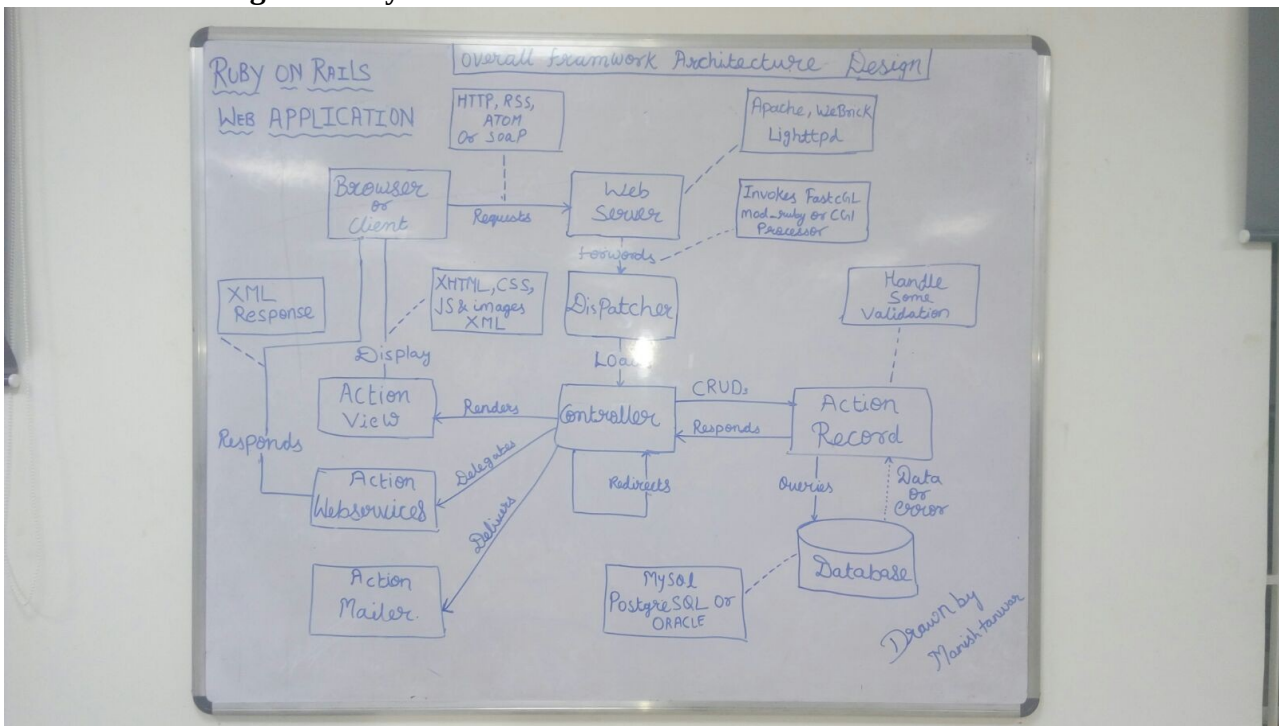 RUBY ON RAILS
WEB APPLICATION
Overall framwork Architecture Design
HTTP, RSS,
ATOM
Or SOAP
Apache, WeBrick
Lighttpd
Browser
or
Client
Requests
Web
Server
Invokes FastCGL
mod_ruby or CGI
Processor
Forwords
XML
Response
XHTML, CSS,
JS & images
XML
DisPatcher
Handle
Some
Validation
Display
Action
View
Renders
Controller
CRUD,
Responds
Action
Record
Responds
Delegates
Action
Webservices
Redirects
Queries
Data
or
error
Delivers
Action
Mailer
MySQL
PostgreSQL Or
ORACLE
Database
Drawn by
Manish tanwar